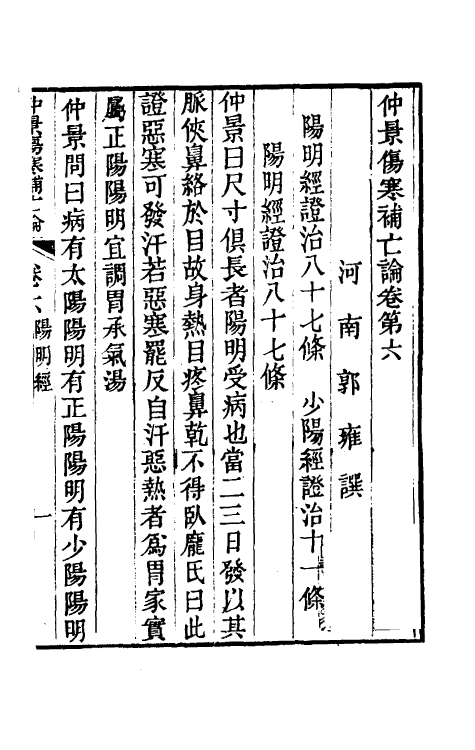 仲景傷寒補亡論卷第六
河南郭雍譔
陽明經證治八十七條　少陽經證治十一條
陽明經證治八十七條
仲景曰尺寸俱長者陽明受病也當二三日發以其
脈俠鼻絡於目故身熱目疼鼻乾不得臥龐氏曰此
證惡寒可發汗若惡寒罷反自汗惡熱者爲胃家實
屬正陽陽明宜調胃承氣湯
仲景問曰病有太陽陽明有正陽陽明有少陽陽明
仲景傷寒補亡論　卷六　陽明經　一